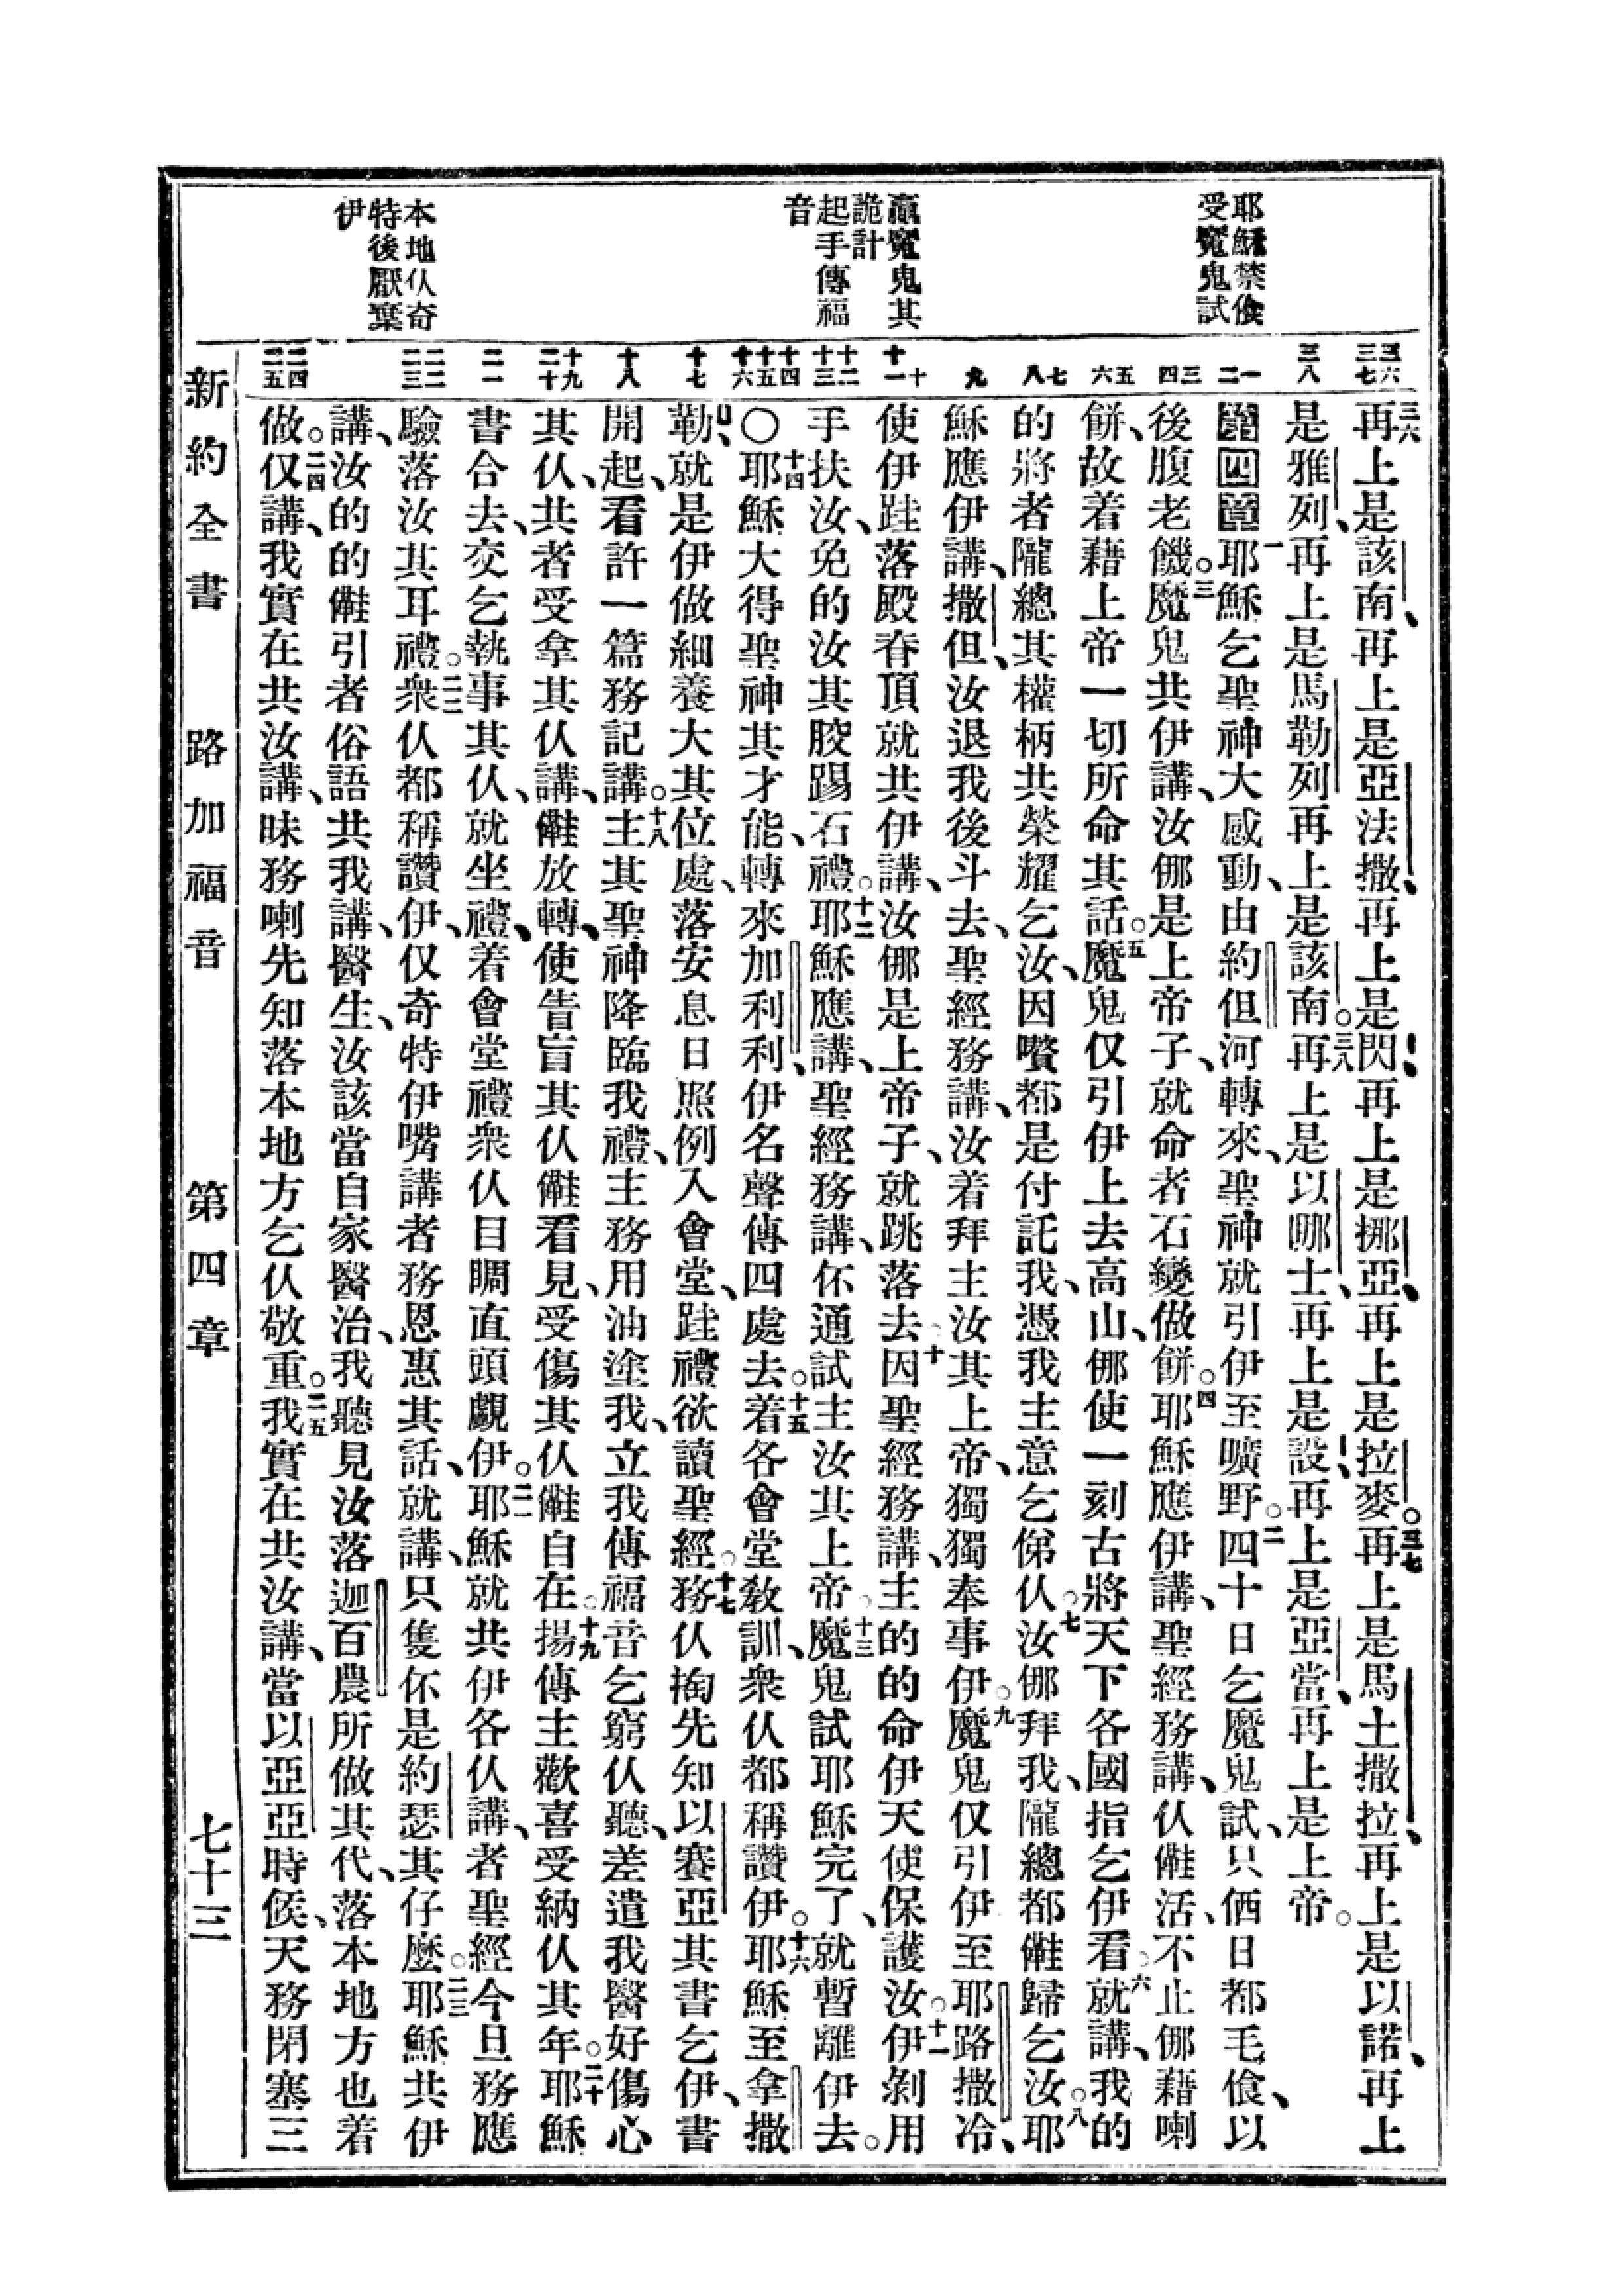 耶穌禁飧
受魔鬼試
贏魔鬼其
詭計
起手傳福
音
本地仈奇
特後厭棄
伊
三六 三七 三八 一 二 三 四 五 六 七 八 九 十 十一 十二 十三 十四 十五 十六 十七 十八 十九 二十 二一 二二 二三 二四 二五
三六再上是該南、再上是亞法撒、再上是閃、再上是挪亞、再上是拉麥。三七再上是馬土撒拉、再上是以諾、再上
是雅列、再上是馬勒列再上是該南。三八再上是以哪士、再上是設、再上是亞當、再上是上帝。
第四章一耶穌乞聖神大感動、由約但河轉來、聖神就引伊至曠野。二四十日乞魔鬼試、只硒日都毛飧、以
後腹老饑。三魔鬼共伊講、汝倻是上帝子、就命者石變做餅。四耶穌應伊講、聖經務講、仈㑚活、不止倻藉喇
餅、故着藉上帝一切所命其話。五魔鬼仅引伊上去高山、倻使一刻古將天下各國指乞伊看。六就講、我的
的將者隴總其權柄共榮耀乞汝、因囋都是付託我、憑我主意乞俤仈。七汝倻拜我、隴總都㑚歸乞汝。八耶
穌應伊講、撒但、汝退我後斗去、聖經務講、汝着拜主汝其上帝、獨獨奉事伊。九魔鬼仅引伊至耶路撒冷、
使伊跬落殿脊頂就共伊講、汝倻是上帝子、就跳落去。十因聖經務講、主的的命伊天使保護汝。十一伊剝用
手扶汝、免的汝其骹踢石禮。十二耶穌應講、聖經務講、伓通試主汝其上帝。十三魔鬼試耶穌完了、就暫離伊去。
〇十四耶穌大得聖神其才能、轉來加利利、伊名聲傳四處去。十五着各會堂教訓、衆仈都稱讚伊。十六耶穌至拿撒
勒、就是伊做細養大其位處、落安息日照例入會堂、跬禮欲讀聖經。十七務仈掏先知以賽亞其書乞伊、書
開起、看許一篇務記講。十八主其聖神降臨我禮、主務用油塗我、立我傳福音乞窮仈聽、差遣我醫好傷心
其仈、共者受拿其仈講、㑚放轉、使眚盲其仈㑚看見、受傷其仈㑚自在。十九揚傳主歡喜受納仈其年。二十耶穌
書合去、交乞執事其仈、就坐禮、着會堂禮衆仈目睭直頭覷伊。二一耶穌就共伊各仈講、者聖經今旦務應
驗落汝其耳禮。二二衆仈都稱讚伊、仅奇特伊嘴講者務恩惠其話、就講、只隻伓是約瑟其仔麼。二三耶穌共伊
講、汝的的㑚引者俗語共我講、醫生、汝該當自家醫治、我聽見汝落迦百農所做其代、落本地方也着
做。二四仅講、我實在共汝講、昧務喇先知落本地方乞仈敬重。二五我實在共汝講、當以亞亞時候、天務閉塞三
新約全書 路加福音 第四章 七十三